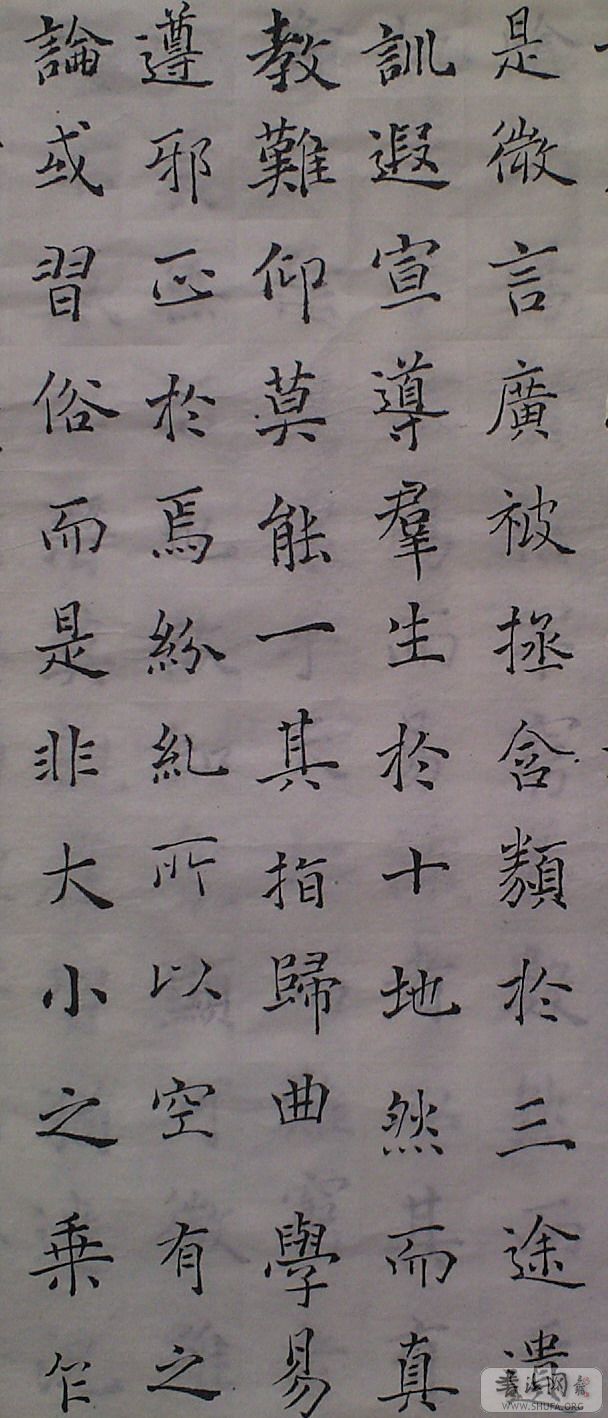 是微言廣被拯含類於三途遺
訓遐宣導羣生於十地然而真
教難仰莫能一其指歸曲學易
遵邪正於焉紛糺所以空有之
論或習俗而是非大小之乗乍
書法网
WWW.SHUFA.ORG